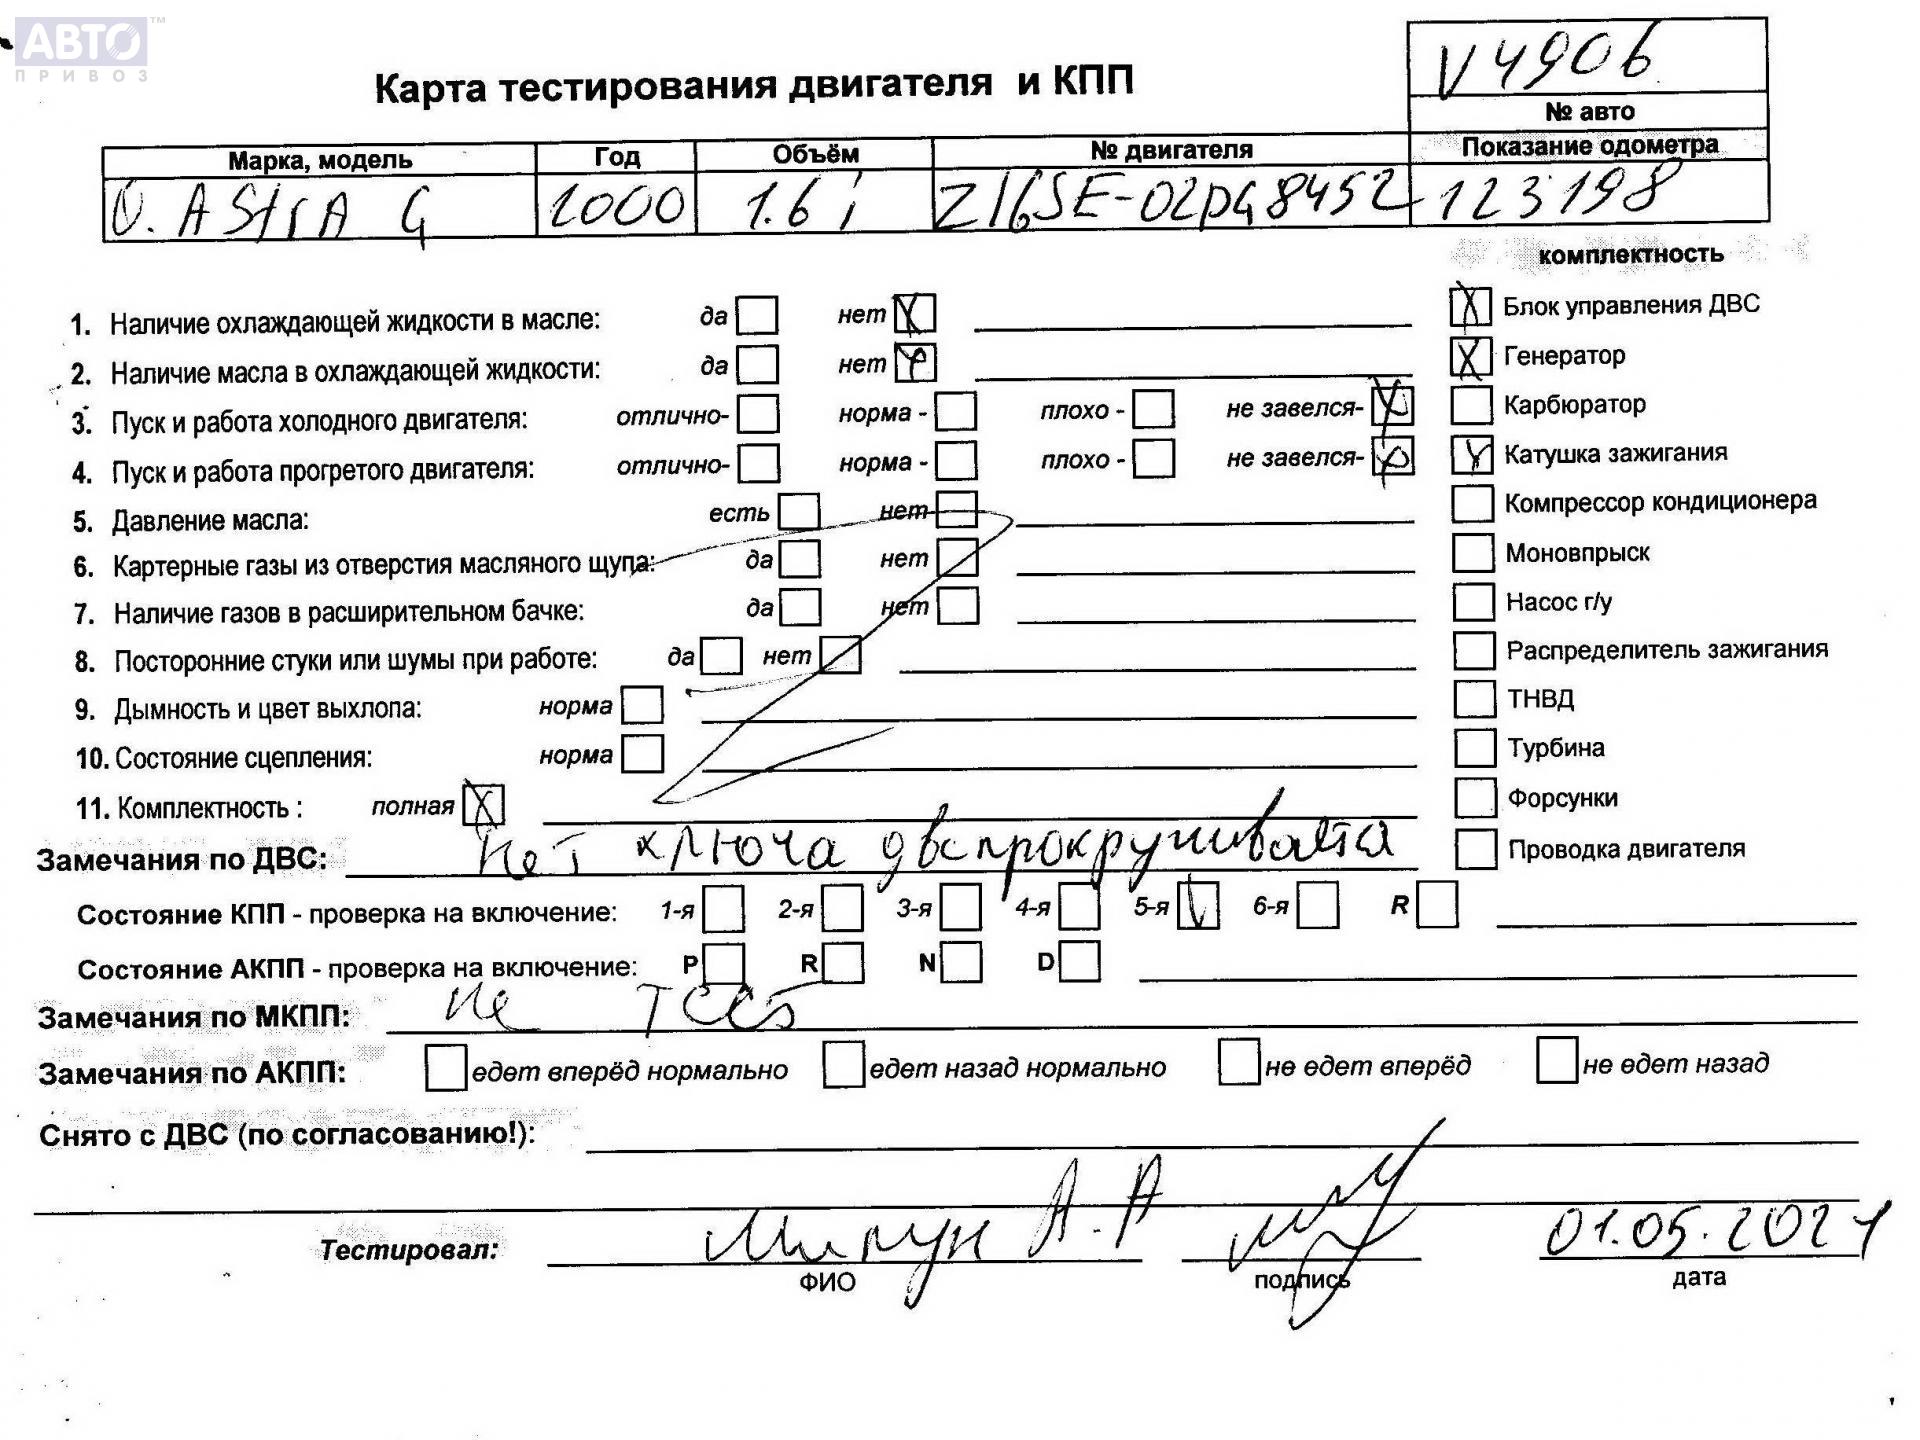 АВТО™
ПРИВОЗ
V4906
Карта тестирования двигателя и КПП
№ авто
Марка, модель Год Объём № двигателя Показание одометра
O. AStrA G 2000 1.6 i Z16SE-02PG8452 123198
комплектность
1. Наличие охлаждающей жидкости в масле: да нет X Блок управления ДВС
2. Наличие масла в охлаждающей жидкости: да нет Генератор
3. Пуск и работа холодного двигателя: отлично- норма - плохо - не завелся- Карбюратор
4. Пуск и работа прогретого двигателя: отлично- норма - плохо - не завелся- Катушка зажигания
5. Давление масла: есть нет Компрессор кондиционера
6. Картерные газы из отверстия масляного щупа: да нет Моновпрыск
7. Наличие газов в расширительном бачке: да нет Насос г/у
8. Посторонние стуки или шумы при работе: да нет Распределитель зажигания
9. Дымность и цвет выхлопа: норма ТНВД
10. Состояние сцепления: норма Турбина
11. Комплектность : полная Форсунки
Замечания по ДВС: Нет ключа двс прокручивается Проводка двигателя
Состояние КПП - проверка на включение: 1-я 2-я 3-я 4-я 5-я 6-я R
Состояние АКПП - проверка на включение: P R N D
Замечания по МКПП: не тест
Замечания по АКПП: едет вперёд нормально едет назад нормально не едет вперёд не едет назад
Снято с ДВС (по согласованию!):
Тестировал: А.А 01.05.2021
ФИО подпись дата